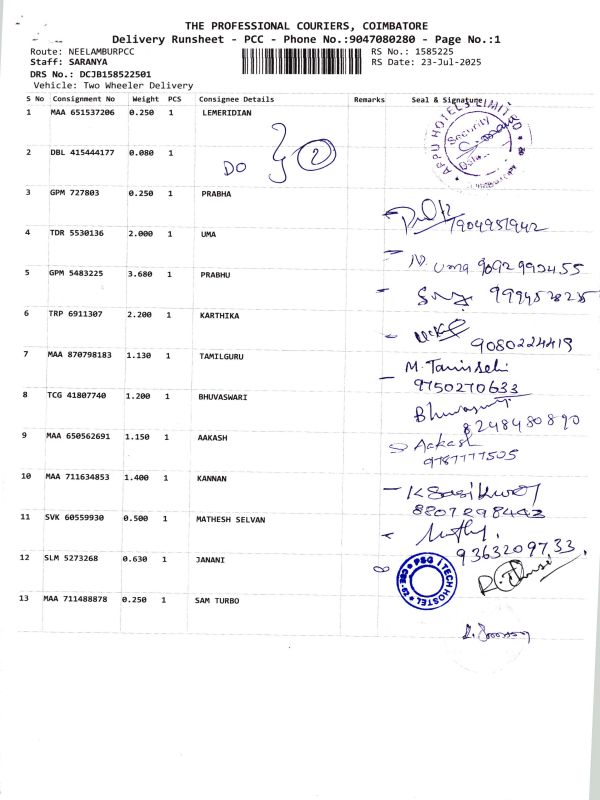 THE PROFESSIONAL COURIERS, COIMBATORE
Delivery Runsheet - PCC - Phone No.:9047080280 - Page No.:1
Route: NEELAMBURPCC RS No.: 1585225
Staff: SARANYA RS Date: 23-Jul-2025
DRS No.: DCJB158522501
Vehicle: Two Wheeler Delivery
S No Consignment No Weight PCS Consignee Details Remarks Seal & Signature
1 MAA 651537206 0.250 1 LEMERIDIAN
APPU HOTELS LIMITED
Security
2 DBL 415444177 0.080 1 DO 2
3 GPM 727803 0.250 1 PRABHA
7904951942
4 TDR 5530136 2.000 1 UMA
N. Uma 9092992455
5 GPM 5483225 3.680 1 PRABHU
6 TRP 6911307 2.200 1 KARTHIKA
9080224419
7 MAA 870798183 1.130 1 TAMILGURU
9750270633
8 TCG 41807740 1.200 1 BHUVASWARI
8248480890
9 MAA 650562691 1.150 1 AAKASH
Aakash
10 MAA 711634853 1.400 1 KANNAN
8807298442
11 SVK 60559930 0.500 1 MATHESH SELVAN
9363209733
12 SLM 5273268 0.630 1 JANANI
PSG iTECH HOSTEL
13 MAA 711488878 0.250 1 SAM TURBO